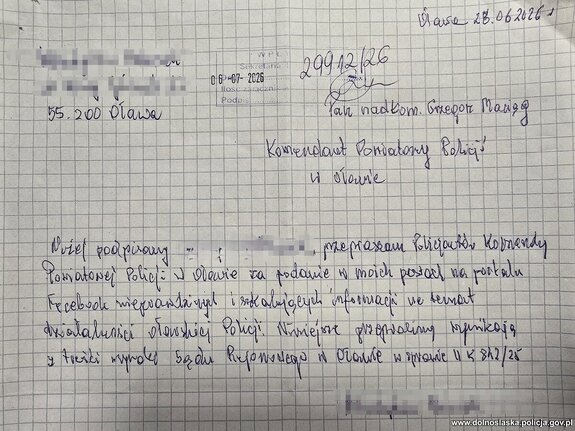 Oława 28.06.2026 r
WPŁ
Sekretariat
06-07-2026
Podpis
29912/26
55-200 Oława
Pan nadkom. Grzegorz
Komendant Powiatowy Policji
w Oławie
Niżej podpisany , przepraszam Policjantów Komendy
Powiatowej Policji w Oławie za podanie w moich postach na portalu
Facebook nieprawdziwych i szkalujących informacji na temat
działalności oławskiej Policji. Niniejsze przeprosiny wynikają
z treści wyroku Sądu Rejonowego w Oławie w sprawie II K 842/25
www.dolnoslaska.policja.gov.pl